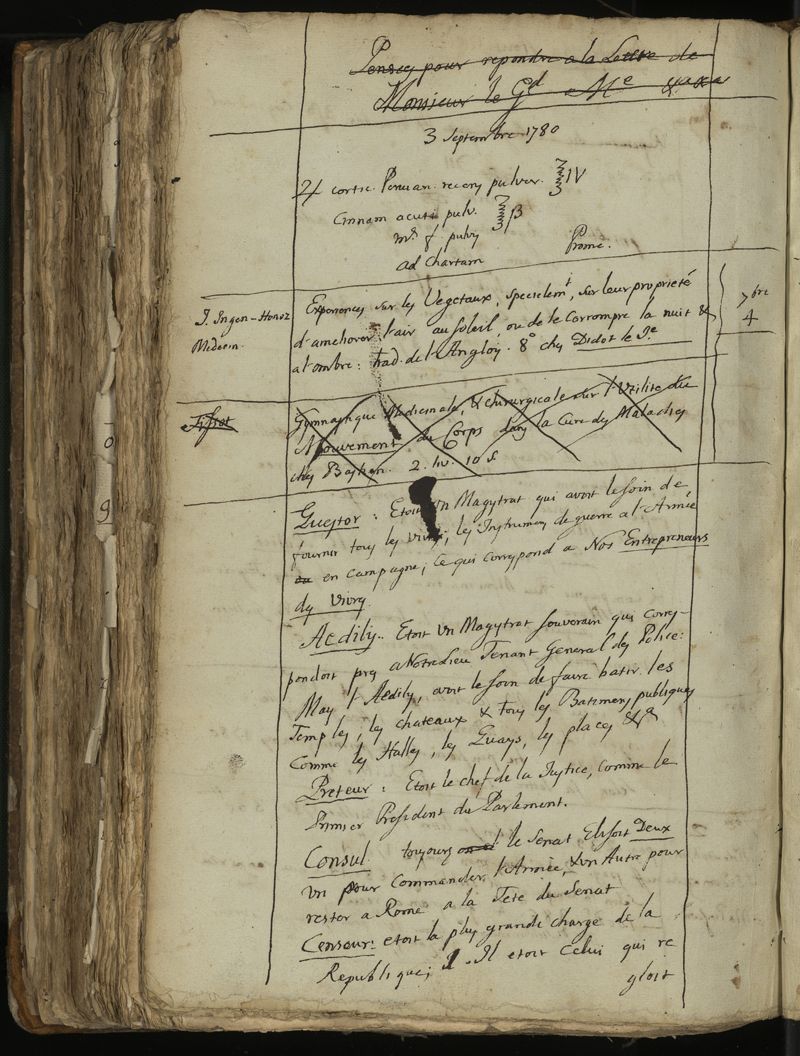 Pensées pour repondre a la Lettre de
Monsieur le Gd Me &
3 Septembre 1780
♃ cortic. Peruan. recen pulver. ℥ IV
Cinnam acuti pulv. ℥ β
m. f. pulv
ad Chartam
Prome.
J. Ingen-Housz
Medecin.
Experiences sur les Vegetaux, specialemt, sur leur proprieté
d'ameliorer l'air au soleil, ou de le Corrompre la nuit &
a l'ombre: trad. de l'Anglois. 8° chez Didot le Je
7bre
4
Tissot
Gymnastique Medicinale, & chirurgicale sur l'Utilité du
Mouvement du Corps dans la Cure des Maladies
chez Bastien. 2. liv. 10 s
Questor: Etoit Un Magistrat qui avoit le soin de
fournir tous les vivres; les Instrumens de guerre a l'Armée
ou en campagne; Ce qui correspond a Nos Entrepreneurs
des Vivres
Aediles.. Etoit Un Magistrat souverain qui corres-
pondoit pres a Notre Lieu Tenant General des Police:
Mais l'Aediles, avoit le soin de faire batir les
Temples, les chateaux & tous les Batimens publiques
Comme les Halles, les Quays, les places &a
Preteur: Etoit le chef de la Justice, comme le
Primier President du Parlement.
Consul toujours le Senat Elisoit Deux
Un pour Commander l'Armée, & Un Autre pour
rester a Rome a la Tete du Senat
Censeur: etoit la plus grande charge de la
Republique; Il etoit Celui qui re
gloit